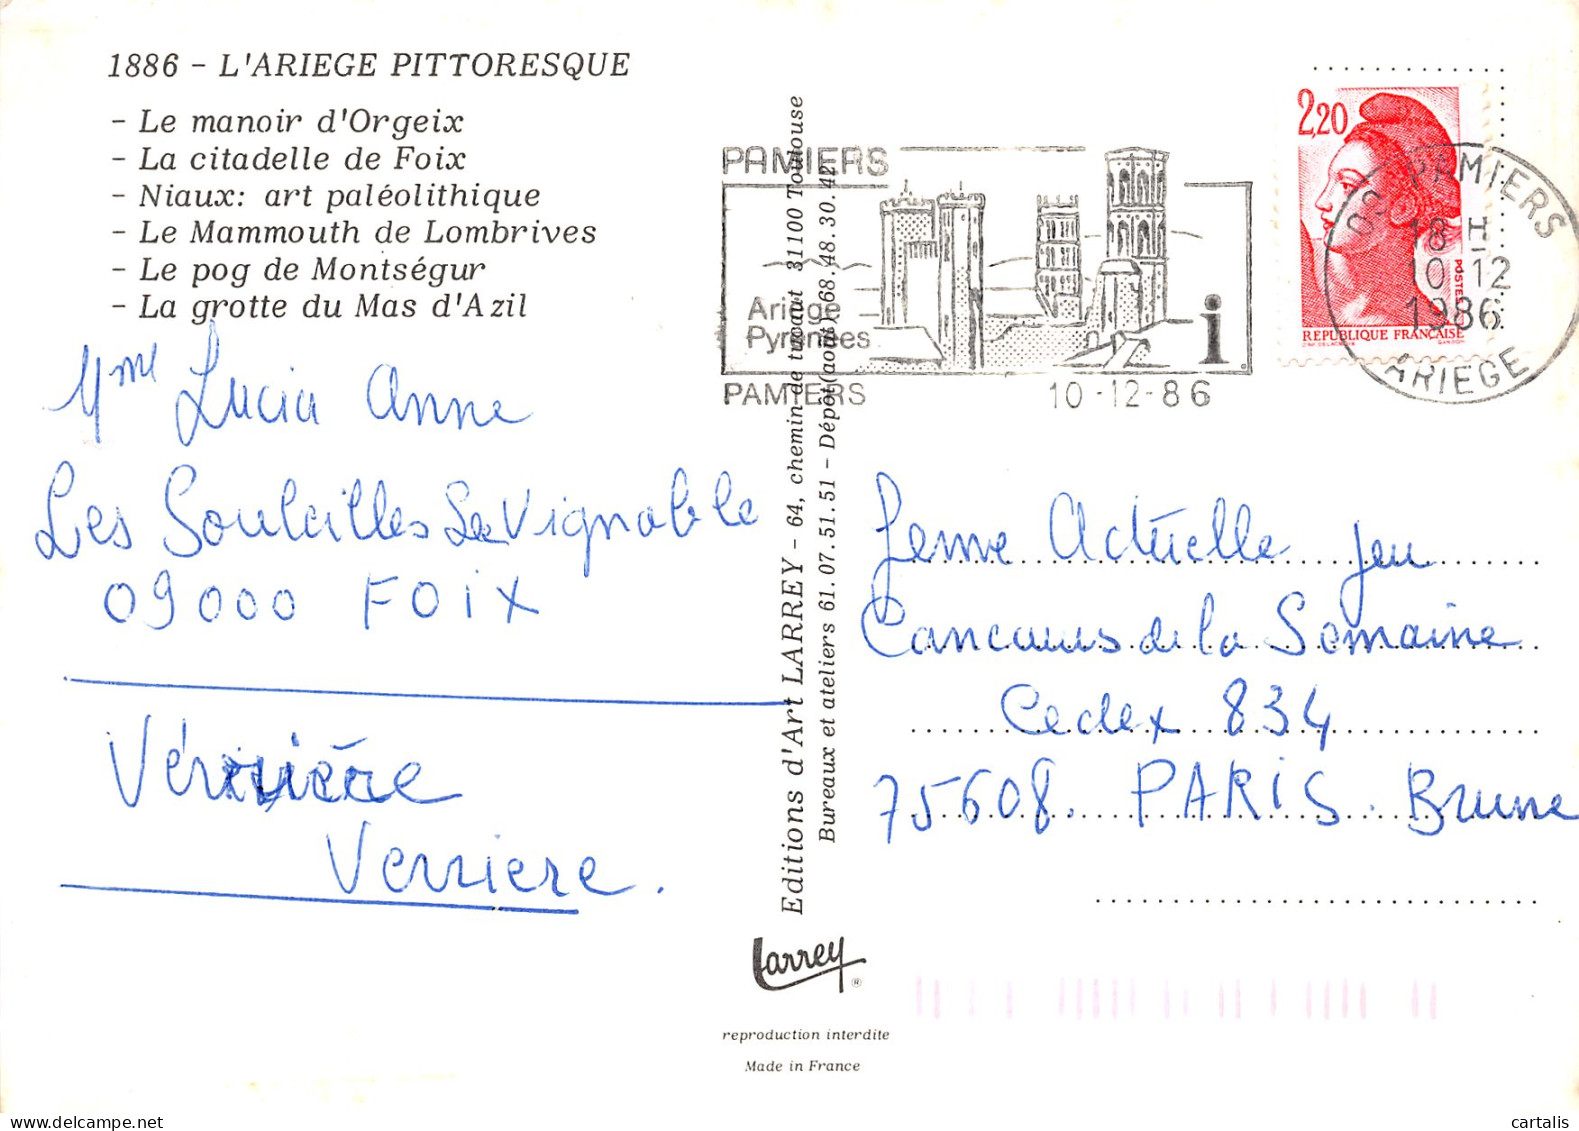 1886 - L'ARIEGE PITTORESQUE
- Le manoir d'Orgeix
- La citadelle de Foix
- Niaux: art paléolithique
- Le Mammouth de Lombrives
- Le pog de Montségur
- La grotte du Mas d'Azil
Mme Lucia Anne
Les Souleilles Le Vignoble
09000 FOIX
Verrière
Verriere.
Editions d'Art LARREY - 64, chemin de tucaut 31100 Toulouse
Bureaux et ateliers 61.07.51.51 - Dépôt (août) 68.48.30.42
Larrey
reproduction interdite
Made in France
PAMIERS
Ariège
Pyrénées
i
PAMIERS
10-12-86
2,20
POSTES
REPUBLIQUE FRANÇAISE
09 PAMIERS
18 H
10-12
1986
ARIEGE
Feme Actuelle jeu
Concours de la Semaine
Cedex 834
75608. PARIS. Brune
cartalis
delcampe.net